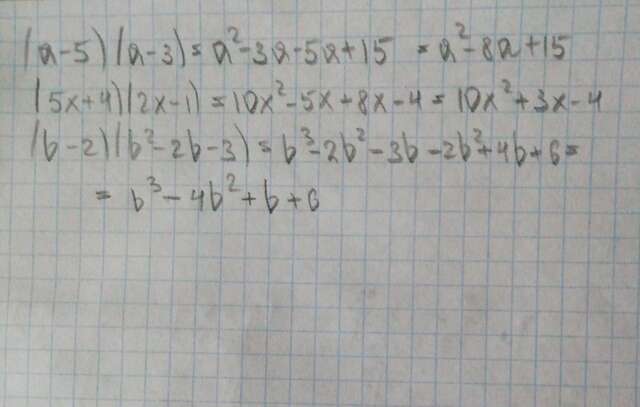 (a-5)(a-3)=a²-3a-5a+15 =a²-8a+15
(5x+4)(2x-1)=10x²-5x+8x-4=10x²+3x-4
(b-2)(b²-2b-3)=b³-2b²-3b-2b²+4b+6=
= b³-4b²+b+6